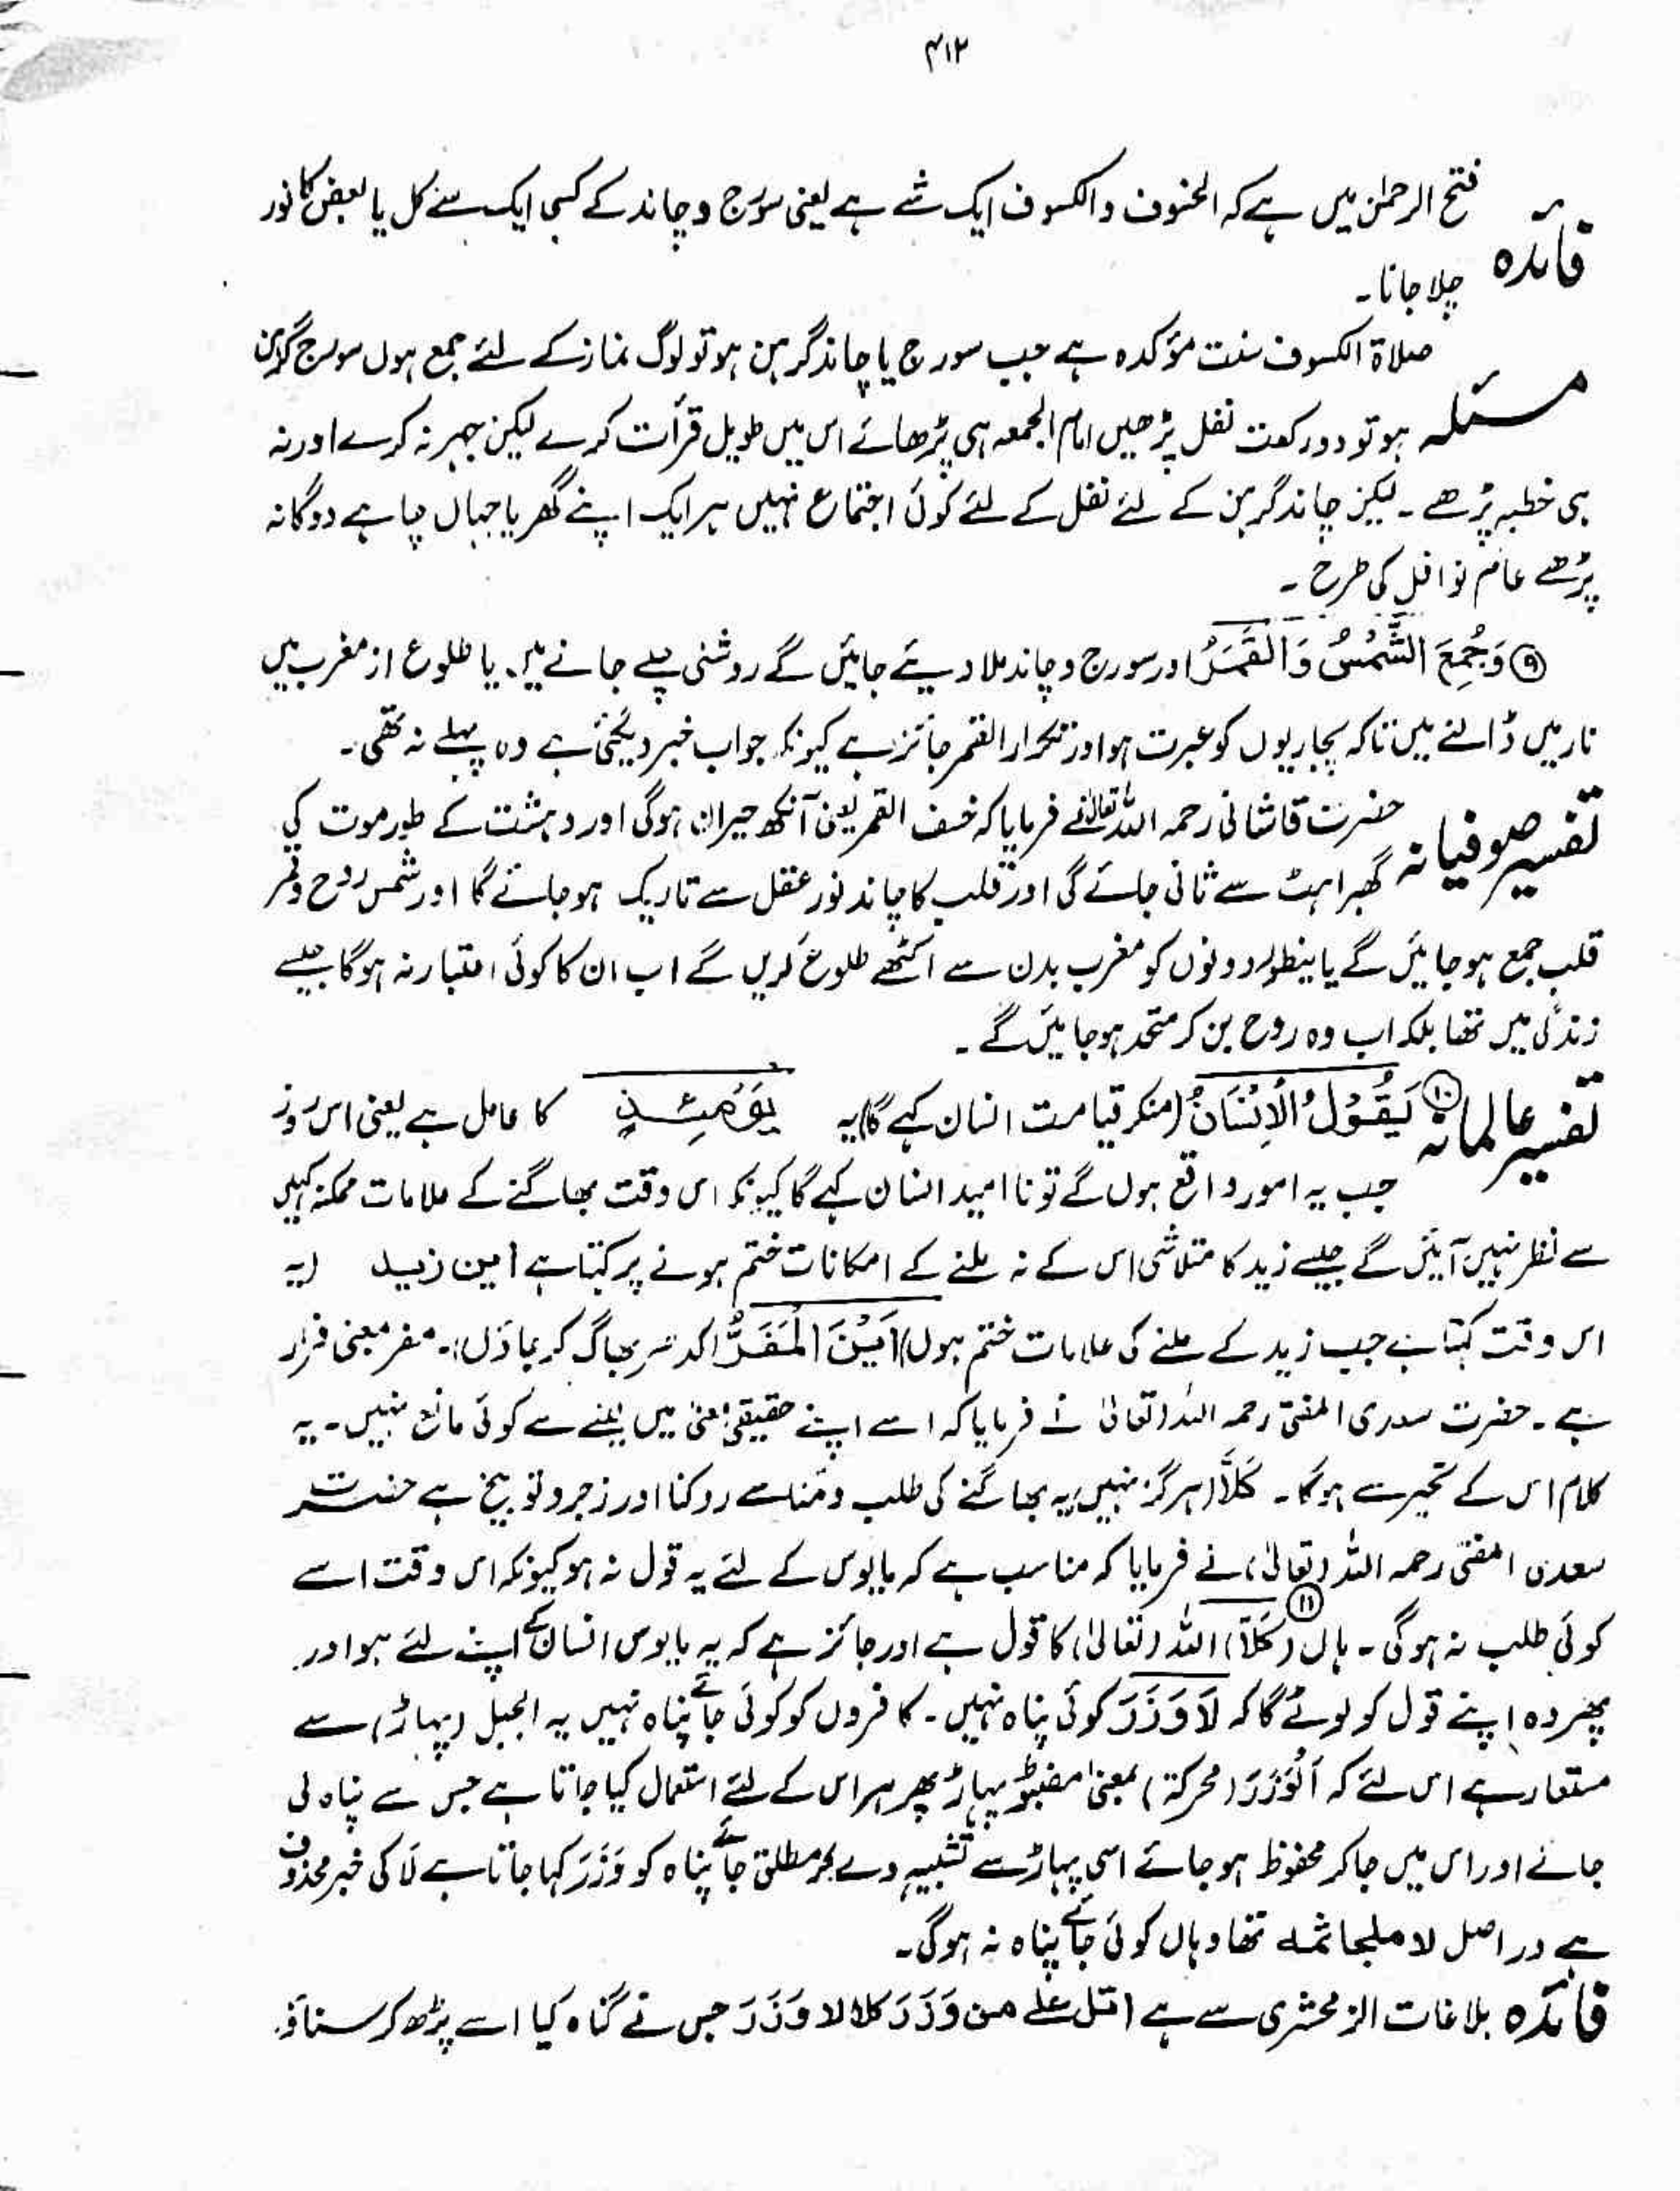 ۴۱۲
فتح الرحمٰن میں ہے کہ الخسوف والکسوف ایک شے ہے یعنی سورج و چاند کے کسی ایک سے کل یا بعض کا نور
فائدہ چلا جانا۔
صلاۃ الکسوف سنت مؤکدہ ہے جب سورج یا چاند گرہن ہو تو لوگ نماز کے لئے جمع ہوں سورج گرہن
مسئلہ ہو تو دو رکعت نفل پڑھیں امام الجمعہ ہی پڑھائے اس میں طویل قرأت کرے لیکن جہر نہ کرے اور نہ
ہی خطبہ پڑھے۔ لیکن چاند گرہن کے لئے نفل کے لئے کوئی اجتماع نہیں ہر ایک اپنے گھر یا جہاں چاہے دوگانہ
پڑھے عام نوافل کی طرح۔
⑨ وَجُمِعَ الشَّمْسُ وَالْقَمَرُ اور سورج و چاند ملا دیئے جائیں گے روشنی چلے جانے میں۔ یا طلوع از مغرب میں
نار میں ڈالنے میں تاکہ پجاریوں کو عبرت ہو اور تکرار القمر جائز ہے کیونکہ جو اب خبر دیگئی ہے وہ پہلے نہ تھی۔
تفسیر صوفیانہ حضرت قاشانی رحمہ اللہ تعالیٰ نے فرمایا کہ خسف القمر یعنی آنکھ حیران ہوگی اور دہشت کے طور موت کی
گھبراہٹ سے ثانی جائے گی اور قلب کا چاند نور عقل سے تاریک ہو جائے گا اور شمس روح و قمر
قلب جمع ہو جائیں گے یا دونوں کو مغرب بدن سے اکٹھے طلوع کریں گے اب ان کا کوئی اعتبار نہ ہوگا جیسے
زندگی میں تھا بلکہ اب وہ روح بن کر متحد ہو جائیں گے۔
تفسیر عالمانہ ⑩ يَقُوْلُ الْاِنْسَانُ (منکر قیامت انسان کہے گا) یہ يَوْمَئِذٍ کا عامل ہے یعنی اس روز
جب یہ امور واقع ہوں گے تو نا امید انسان کہے گا کیونکہ اس وقت بھاگنے کے علامات ممکنہ کہیں
سے نظر نہیں آئیں گے جیسے زید کا متلاشی اس کے نہ ملنے کے امکانات ختم ہونے پر کہتا ہے أین زید (یہ
اس وقت کہتا ہے جب زید کے ملنے کی علامات ختم ہوں) اَيْنَ الْمَفَرُّ (کدھر بھاگ کر جاؤں)۔ مفر معنی فرار
ہے۔ حضرت سعدی المفتی رحمہ اللہ (تعالیٰ) نے فرمایا کہ اسے اپنے حقیقی معنیٰ میں لینے سے کوئی مانع نہیں۔ یہ
کلام اس کے تحیر سے ہوگا۔ كَلَّا (ہرگز نہیں) یہ بھاگنے کی طلب و تمنا سے روکنا اور زجر و توبیخ ہے حضرت
سعدی المفتی رحمہ اللہ (تعالیٰ) نے فرمایا کہ مناسب ہے کہ مایوس کے لئے یہ قول نہ ہو کیونکہ اس وقت اسے
کوئی طلب نہ ہوگی۔ ہاں ⑪ (کَلَّا) اللہ (تعالیٰ) کا قول ہے اور جائز ہے کہ یہ مایوس انسان کے اپنے لئے ہو اور
پھر وہ اپنے قول کو لوٹے گا کہ لَا وَزَرَ کوئی پناہ نہیں۔ کافروں کو کوئی جائے پناہ نہیں یہ الجبل (پہاڑ) سے
مستعار ہے اس لئے کہ اَلْوَزَرَ (محرکۃ) بمعنیٰ مضبوط پہاڑ پھر ہر اس کے لئے استعمال کیا جاتا ہے جس سے پناہ لی
جائے اور اس میں جاکر محفوظ ہو جائے اسی پہاڑ سے تشبیہ دے کر مطلق جائے پناہ کو وَزَرَ کہا جاتا ہے لَا کی خبر محذوف
ہے دراصل لا ملجا ثمہ تھا وہاں کوئی جائے پناہ نہ ہوگی۔
فائدہ بلاغات الزمخشری سے ہے اتل علے من وَزَرَ کلا لا وَزَرَ جس نے گناہ کیا اسے پڑھ کر سناؤ۔